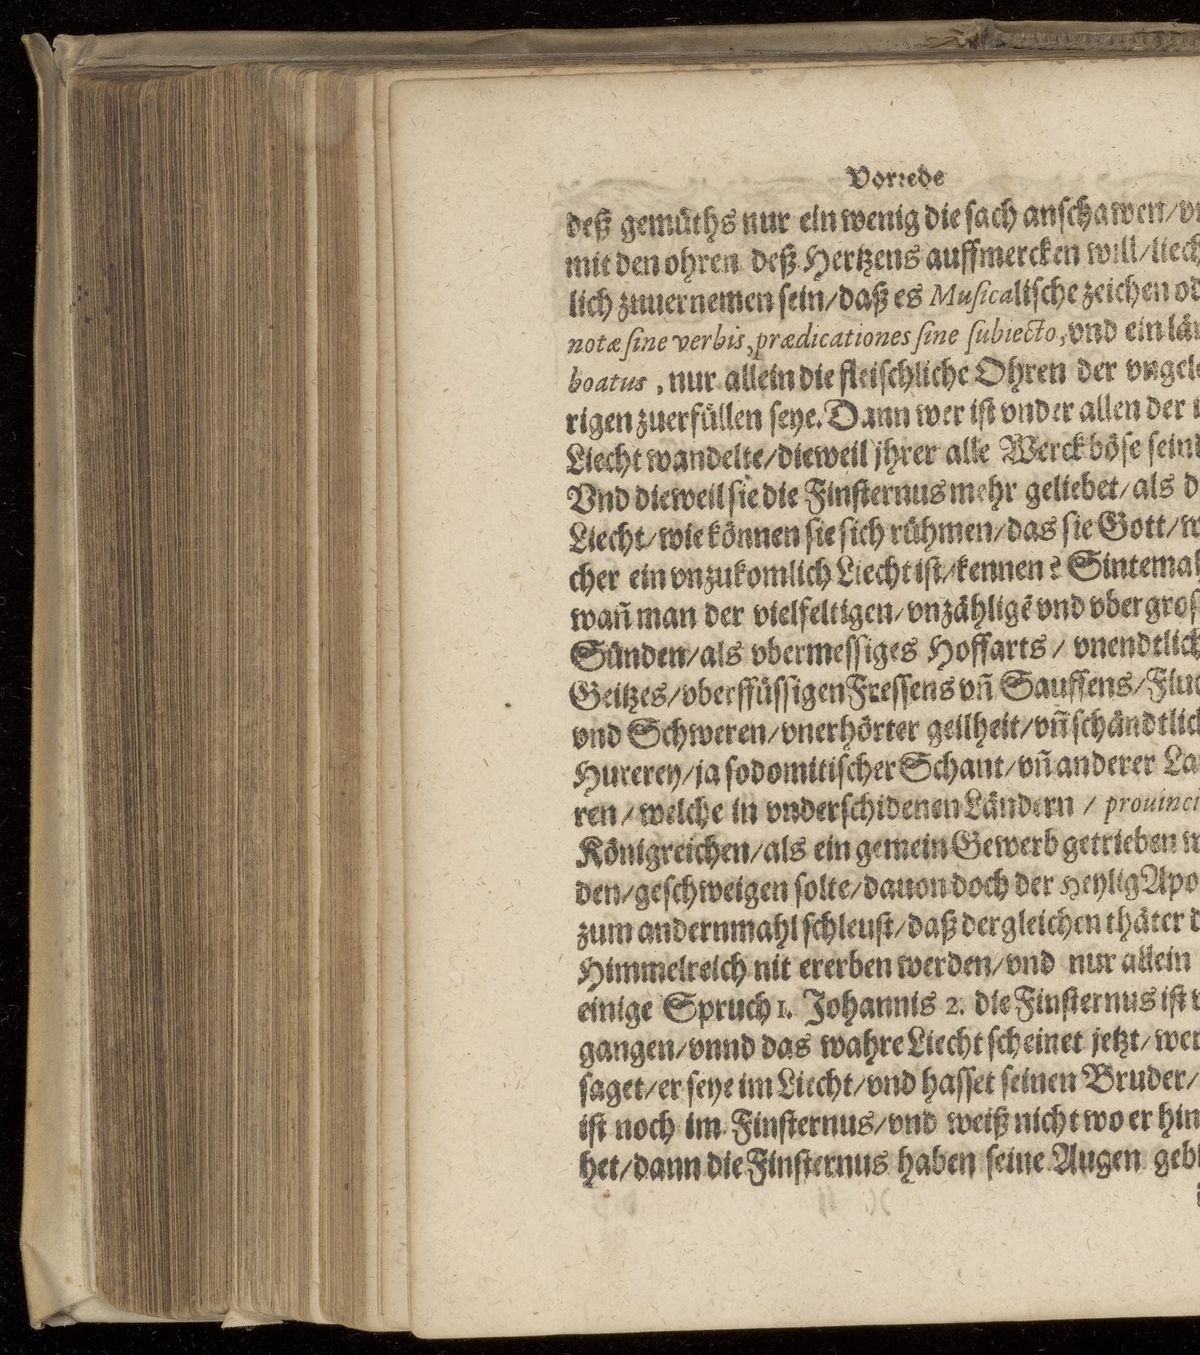 Vorrede
deß gemüths nur ein wenig die sach anschawen/
mit den ohren deß Hertzens auffmercken will/liech
lich zuuernemen sein/daß es Musicalische zeichen od
notæ sine verbis, prædicationes sine subiecto, vnd ein lä
boatus, nur allein die fleischliche Ohren der vngele
rigen zuerfüllen seye. Dann wer ist vnder allen der
Liecht wandelte/dieweil jhrer alle Werck böse seind
Vnd dieweil sie die Finsternus mehr geliebet/als d
Liecht/wie können sie sich rühmen/das sie Gott/w
cher ein vnzukomlich Liecht ist/kennen? Sintemal
wañ man der vielfeltigen/vnzähligē vnd vbergros
Sünden/als vbermessiges Hoffarts/ vnendtlich
Geitzes/vberffüssigen Fressens vñ Sauffens/Fluc
vnd Schweren/vnerhörter geilheit/vñ schändtlich
Hurerey/ja sodomitischer Schant/vñ anderer La
ren/welche in vnderschidenen Ländern / prouinci
Königreichen/als ein gemein Gewerb getrieben w
den/geschweigen solte/dauon doch der Heylig Apo
zum andernmahl schleust/daß dergleichen thäter d
Himmelreich nit ererben werden/vnd nur allein
einige Spruch 1. Johannis 2. die Finsternus ist v
gangen/vnnd das wahre Liecht scheinet jetzt/wer
saget/er seye im Liecht/vnd hasset seinen Bruder/
ist noch im Finsternus/vnd weiß nicht wo er hin
het/dann die Finsternus haben seine Augen gebl